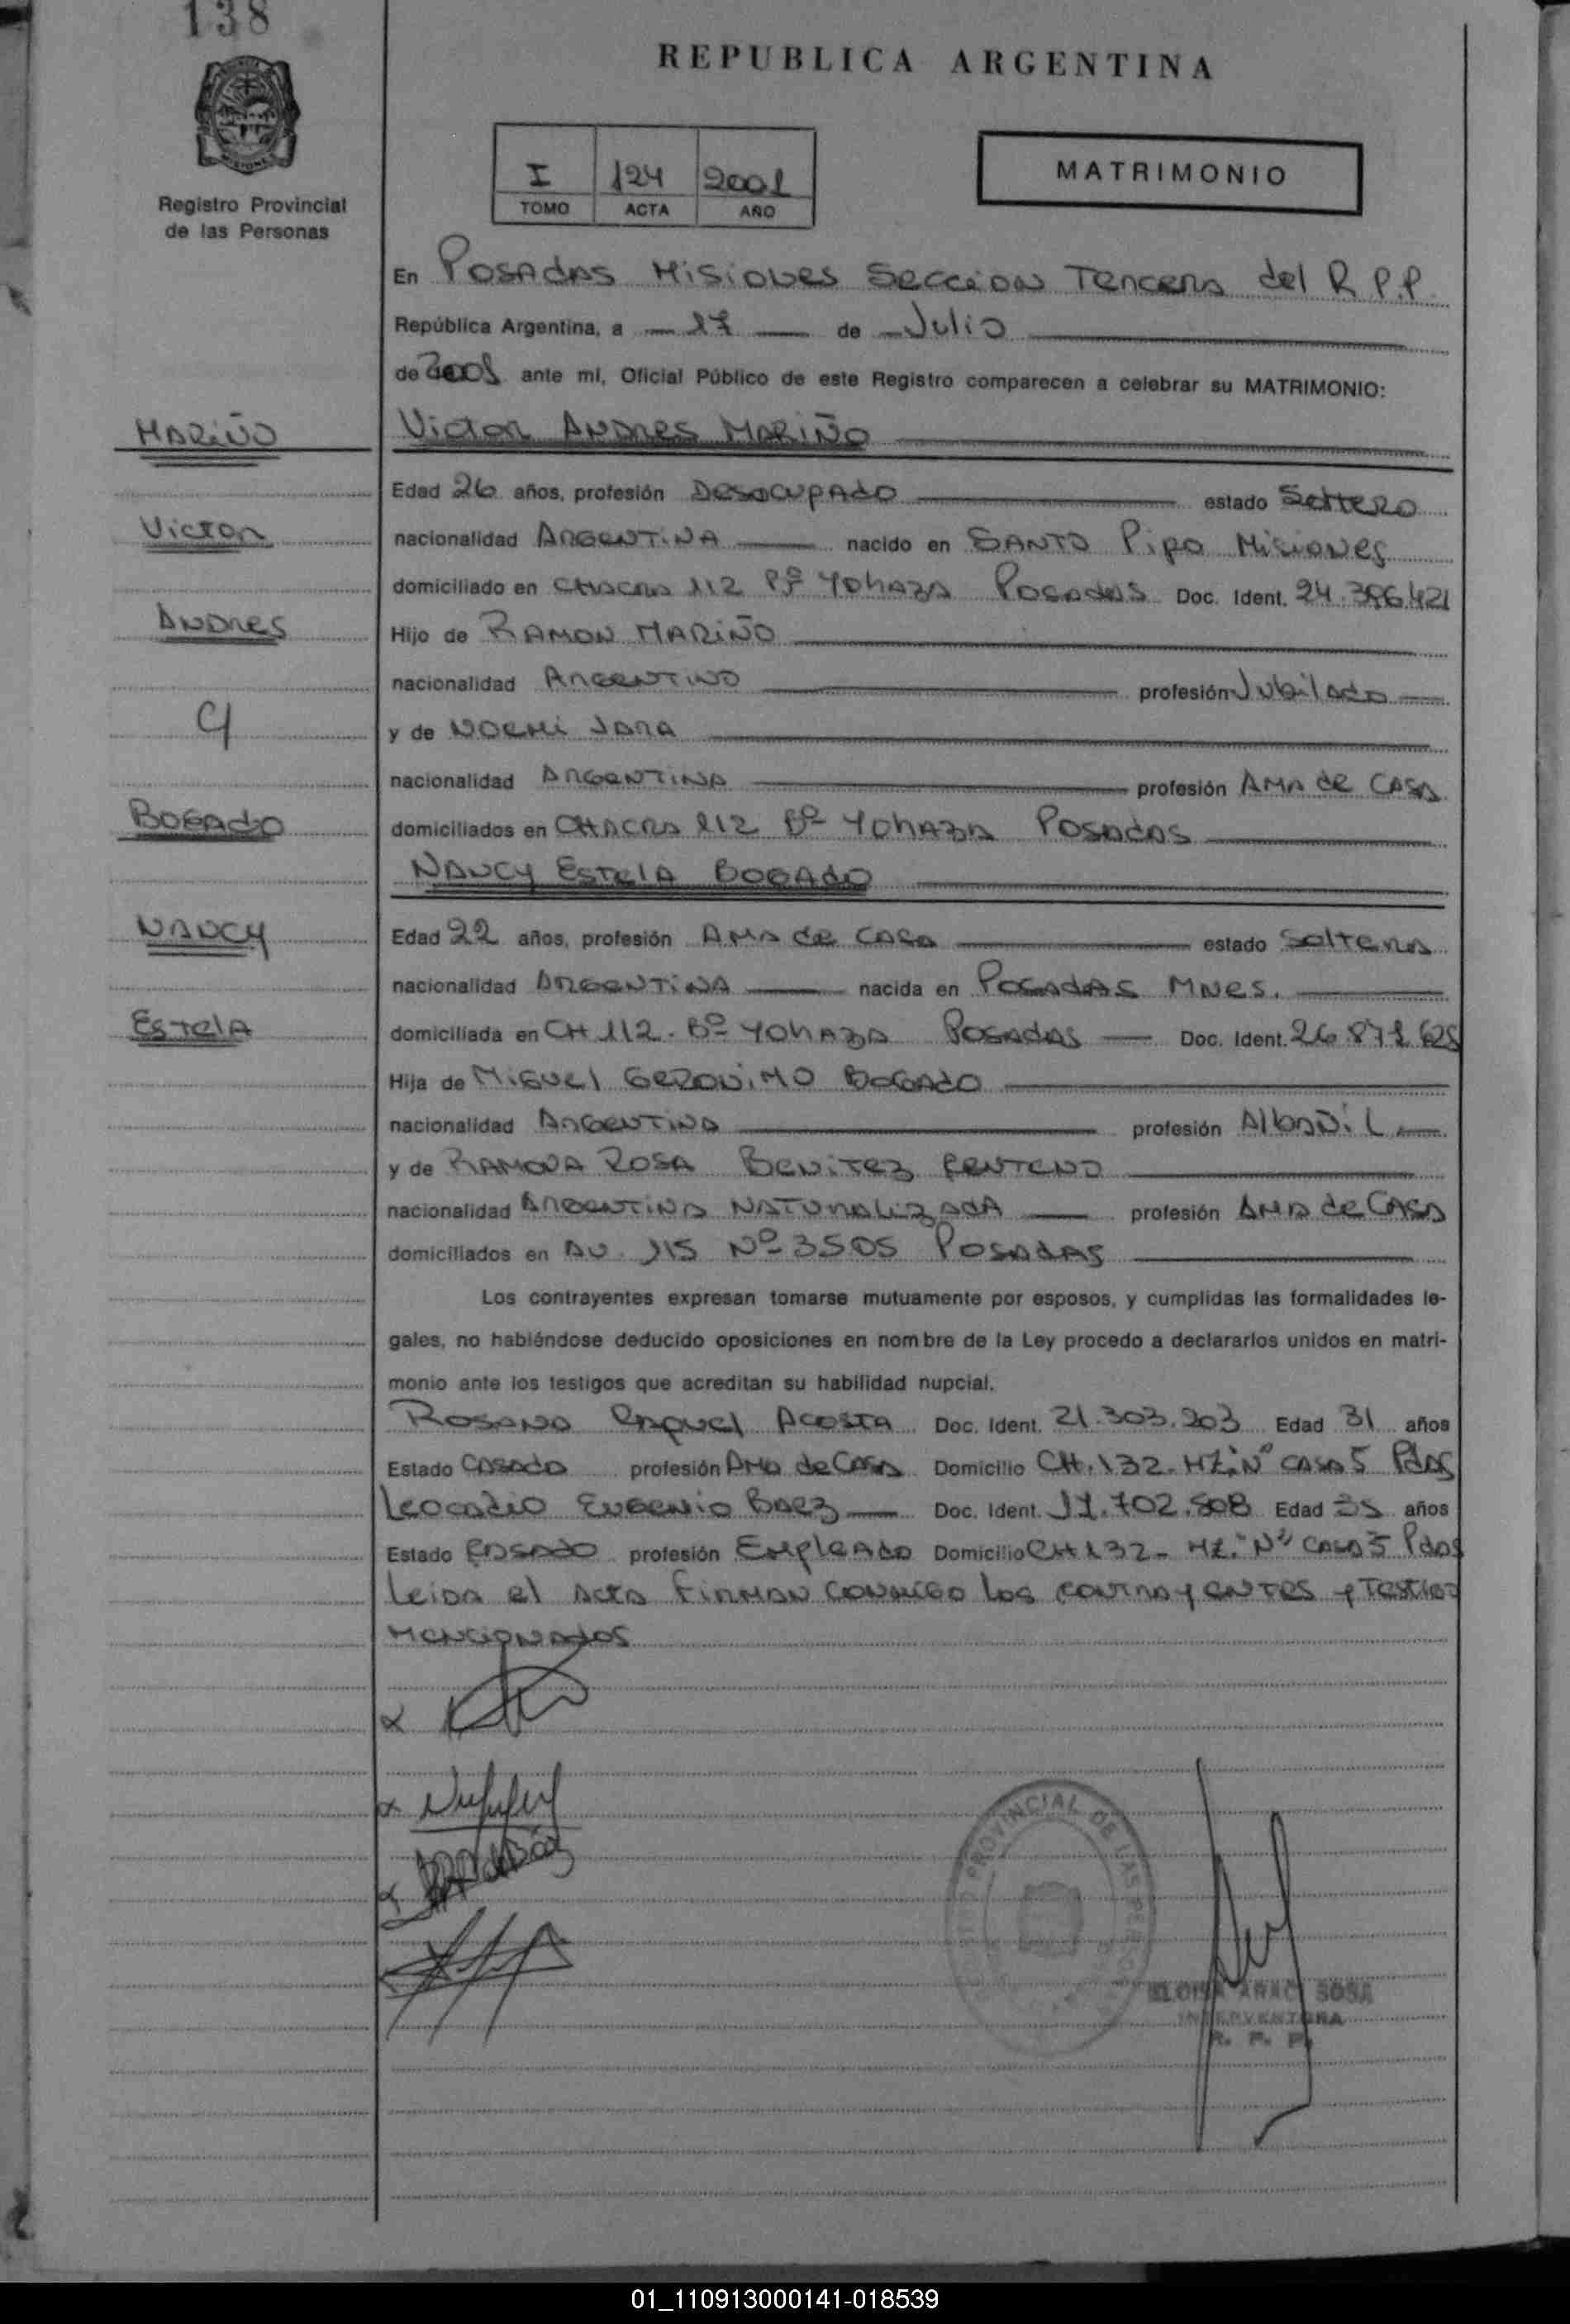 138
REPUBLICA ARGENTINA
Registro Provincial
de las Personas
I 124 2001
TOMO ACTA AÑO
MATRIMONIO
En Posadas Misiones Seccion Tercera del R.P.P.
República Argentina, a 17 de Julio
de 2001 ante mi, Oficial Público de este Registro comparecen a celebrar su MATRIMONIO:
MARIÑO Victor Andres MARIÑO
Edad 26 años, profesión Desocupado estado Soltero
Victor nacionalidad Argentina nacido en Santo Pipo Misiones
domiciliado en Chacra 112 Bº Yohaza Posadas Doc. Ident. 24.396.421
Andres Hijo de Ramon Mariño
nacionalidad Argentino profesión Jubilado
y de Noemi Jara
nacionalidad Argentina profesión Ama de Casa
Bogado domiciliados en Chacra 112 Bº Yohaza Posadas
Nancy Estela Bogado
Nancy Edad 22 años, profesión Ama de Casa estado Soltera
nacionalidad Argentina nacida en Posadas Mnes.
Estela domiciliada en CH 112 - Bº Yohaza Posadas Doc. Ident. 26.871.625
Hija de Miguel Geronimo Bogado
nacionalidad Argentina profesión Albañil
y de Ramona Rosa Benitez Centeno
nacionalidad Argentina Naturalizada profesión Ama de Casa
domiciliados en Av. 115 Nº 3505 Posadas
Los contrayentes expresan tomarse mutuamente por esposos, y cumplidas las formalidades le-
gales, no habiéndose deducido oposiciones en nombre de la Ley procedo a declararlos unidos en matri-
monio ante los testigos que acreditan su habilidad nupcial.
Rosana Raquel Acosta Doc. Ident. 21.303.203 Edad 31 años
Estado Casada profesión Ama de Casa Domicilio CH. 132 - MZ. "N" Casa 5 Pdas
Leocadio Eugenio Baez Doc. Ident. 17.702.508 Edad 35 años
Estado Casado profesión Empleado Domicilio CH 132 - MZ. "N" Casa 5 Pdas
Leida el Acta firman conmigo los contrayentes y testigos
mencionados
PROVINCIAL DE LAS PERSONAS
ELOISA ARACI SOSA
INTERVENTORA
R. P. P.
01_110913000141-018539